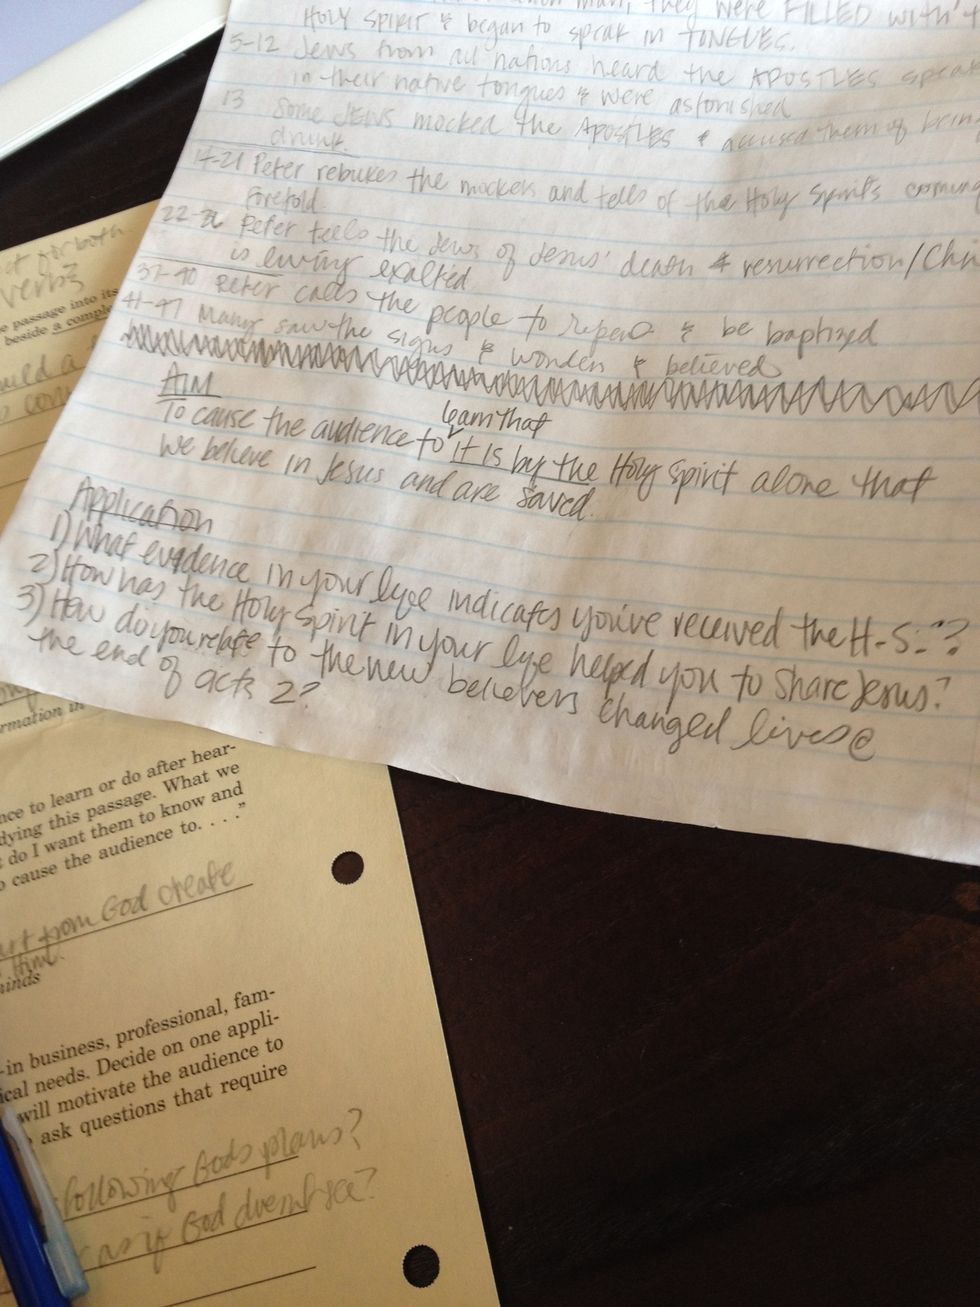 man, they were FILLED with
Holy Spirit & began to speak in TONGUES.
5-12 Jews from all nations heard the APOSTLES speak
in their native tongues & were astonished
13 Some JEWS mocked the APOSTLES & accused them of
drunk.
14-21 Peter rebukes the mockers and tells of the Holy Spirit's coming
foretold.
22-36 Peter tells the Jews of Jesus' death & resurrection/
is living exalted.
37-40 Peter calls the people to repent & be baptized
41-47 Many saw the signs & wonders & believed
AIM
learn that
To cause the audience to it is by the Holy Spirit alone that
we believe in Jesus and are saved.
Application
1) What evidence in your life indicates you've received the H.S.?
2) How has the Holy Spirit in your life helped you to share Jesus?
3) How do you relate to the new believers changed lives @
the end of acts 2?
for both
verbs
e passage into its
beside a comple
rmation in
nce to learn or do after hear-
dying this passage. What we
do I want them to know and
o cause the audience to. . . ."
from God create
Him.
minds
-in business, professional, fam-
ical needs. Decide on one appli-
will motivate the audience to
ask questions that require
following Gods plans?
as if God doesn't see?